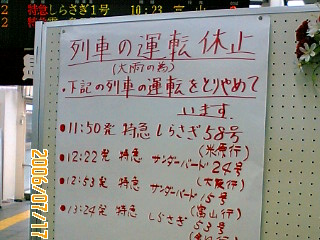 2 特急しらさぎ1号 10:23 富山
2 特急
列車の運転休止
(大雨の為)
・下記の列車の運転をとりやめて
います.
●11:50発 特急 しらさぎ58号
(米原行)
●12:22発 特急 サンダーバード24号
(大阪行)
●12:53発 特急 サンダーバード15号
(富山行)
●13:24発 特急 しらさぎ53号
2006/07/17